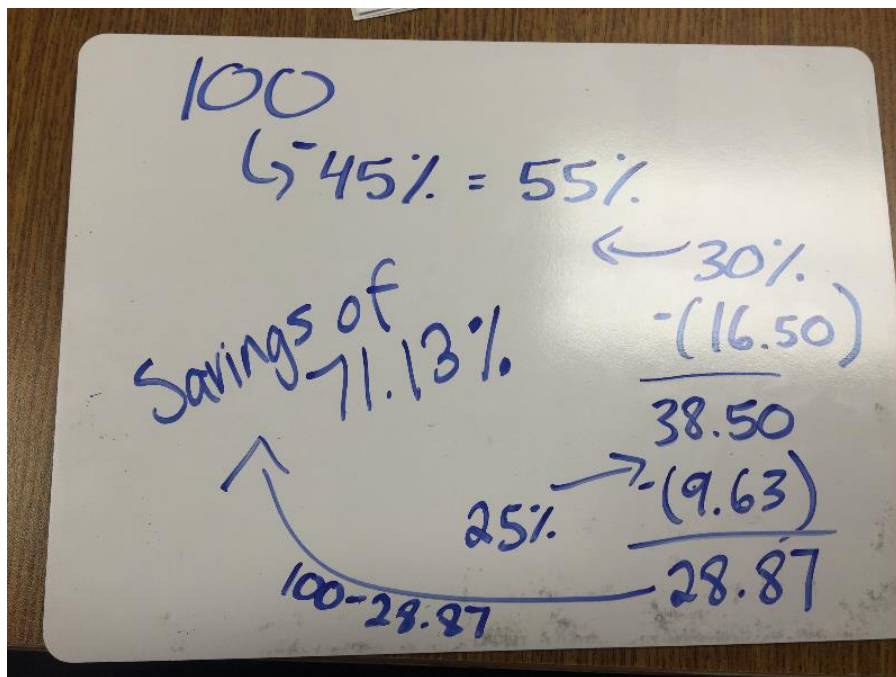 100
-45% = 55%
30%
-(16.50)
38.50
25%
-(9.63)
28.87
100-28.87
Savings of
71.13%